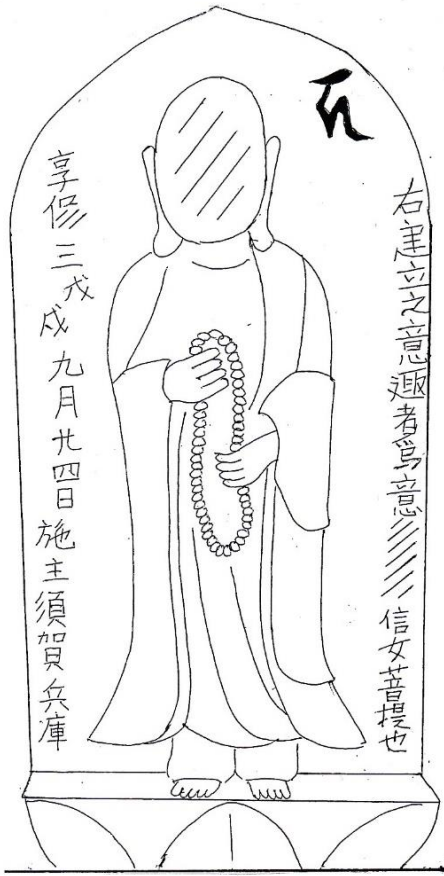 右建立之意趣者爲意
信女菩提也
享保三戊戌九月廿四日施主須賀兵庫